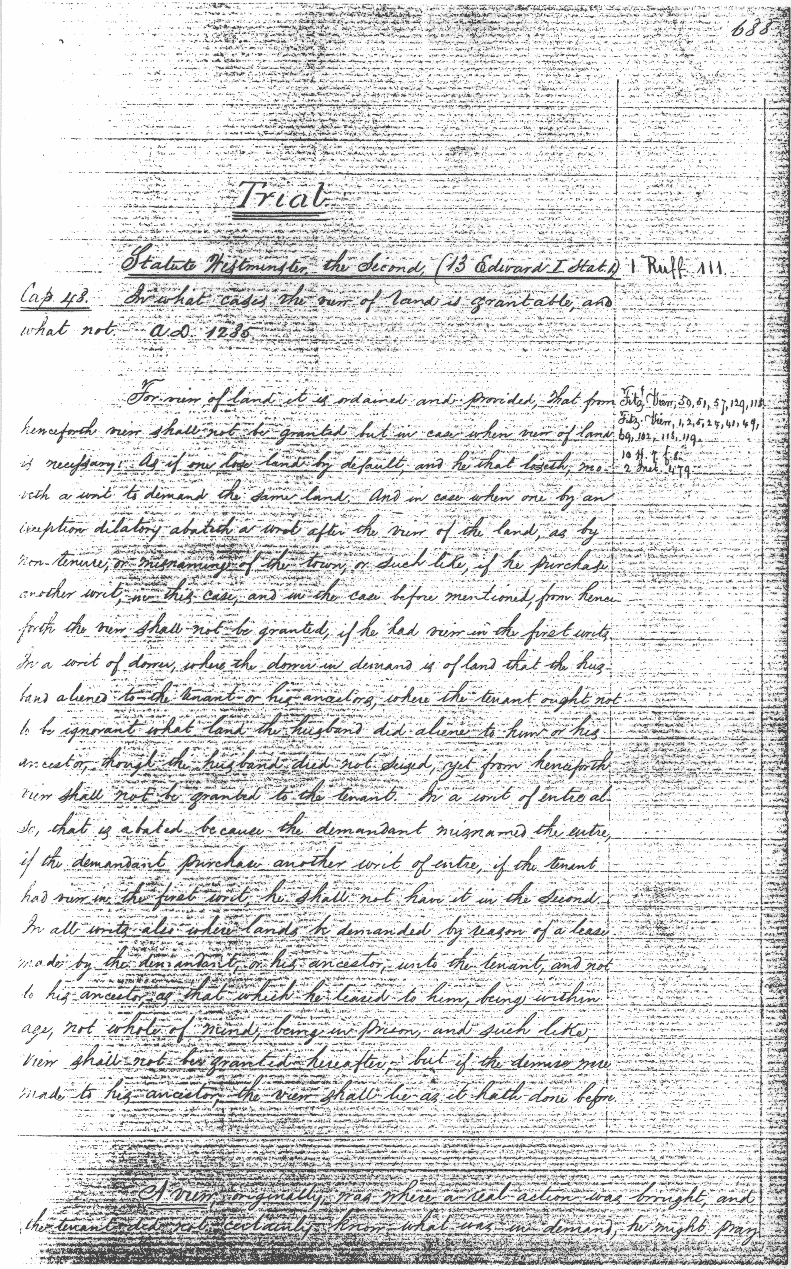 688
Trial
Statute Westminster the Second, (13 Edward I Stat. 1) 1 Ruff 111.
Cap. 48. In what cases the view of land is grantable, and
what not. A.D. 1285.
For view of land it is ordained and provided, that from
Fitz. View, 50, 51, 57, 129, 118
henceforth view shall not be granted but in case when view of land
Fitz. View, 1, 2, 5, 27, 41, 49,
69, 102, 113, 119.
is necessary: As if one lose land by default, and he that loseth, mo-
10 H. 7 f. 8.
2 Inst. 479
veth a writ to demand the same land. And in case when one by an
exception dilatory abateth a writ after the view of the land, as by
non-tenure, or misnaming of the town, or such like, if he purchase
another writ, in this case, and in the case before mentioned, from hence
forth the view shall not be granted, if he had view in the first writ.
In a writ of dower, where the dower in demand is of land that the hus-
band aliened to the tenant or his ancestors, where the tenant ought not
to be ignorant what land the husband did aliene to him or his
ancestor, though the husband died not seised, yet from henceforth
view shall not be granted to the tenant. In a writ of entre al-
so, that is abated because the demandant misnamed the entre,
if the demandant purchase another writ of entre, if the tenant
had view in the first writ, he shall not have it in the second.
In all writs also where lands be demanded by reason of a lease
made by the demandant, or his ancestor, unto the tenant, and not
to his ancestor, as that which he leased to him, being within
age, not whole of mind, being in prison, and such like,
view shall not be granted hereafter; but if the demise were
made to his ancestor, the view shall lie as it hath done before.
A view, originally, was where a real action was brought, and
the tenant did not certainly know what was in demand, he might pray